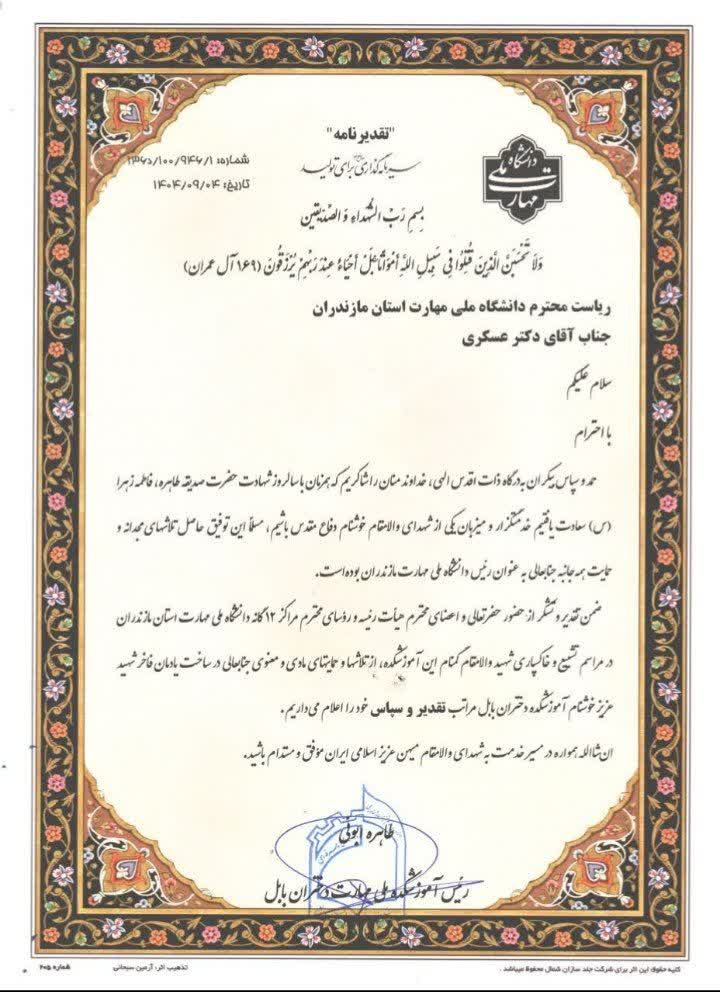 "تقدیرنامه"
سرمایه‌گذاری برای تولید
شماره: ۱۳۶۰/۱۰۰/۹۴۶/۱
تاریخ: ۱۴۰۴/۰۹/۰۴
دانشگاه ملی مهارت
بِسمِ رَبِّ الشُّهداءِ وَ الصِّدیقین
وَلَا تَحْسَبَنَّ الَّذِینَ قُتِلُوا فِی سَبِیلِ اللَّهِ أَمْوَاتًا بَلْ أَحْیَاءٌ عِندَ رَبِّهِمْ یُرْزَقُونَ (۱۶۹ آل عمران)
ریاست محترم دانشگاه ملی مهارت استان مازندران
جناب آقای دکتر عسکری
سلام علیکم
با احترام
حمد و سپاس بیکران به درگاه ذات اقدس الهی، خداوند منان را شاکریم که همزمان با سالروز شهادت حضرت صدیقه طاهره، فاطمه زهرا
(س) سعادت یافتیم خدمتگزار و میزبان یکی از شهدای والامقام خوشنام دفاع مقدس باشیم، مسلماً این توفیق حاصل تلاشهای مجدانه و
حمایت همه جانبه جنابعالی به عنوان رئیس دانشگاه ملی مهارت مازندران بوده است.
ضمن تقدیر و تشکر از حضور حضرتعالی و اعضای محترم هیأت رئیسه و رؤسای محترم مراکز ۱۲ گانه دانشگاه ملی مهارت استان مازندران
در مراسم تشییع و خاکسپاری شهید والامقام گمنام این آموزشکده، از تلاشها و حمایتهای مادی و معنوی جنابعالی در ساخت یادمان فاخر شهید
عزیز خوشنام آموزشکده دختران بابل مراتب تقدیر و سپاس خود را اعلام می‌داریم.
ان شاالله همواره در مسیر خدمت به شهدای والامقام میهن عزیز اسلامی ایران موفق و مستدام باشید.
طاهره ابوئی
رئیس آموزشکده ملی مهارت دختران بابل
کلیه حقوق این اثر برای شرکت جلد سازان شمال محفوظ میباشد.
تذهیب اثر: آرمین سبحانی
شماره ۲۰۵